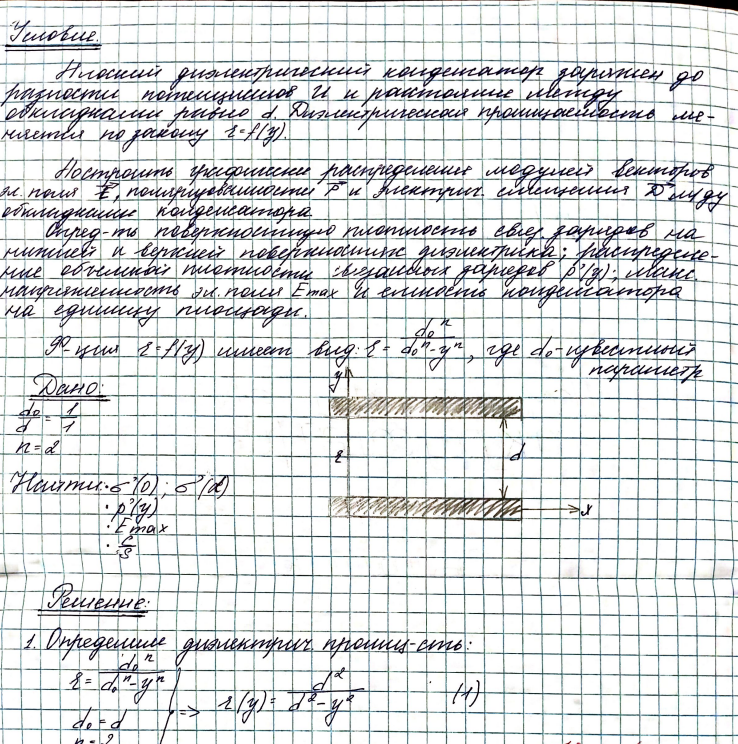 Условие.
Плоский диэлектрический конденсатор заряжен до
разности потенциалов U и расстояние между
обкладками равно d. Диэлектрическая проницаемость ме-
няется по закону ε=f(y).
Построить графически распределение модулей векторов
эл. поля E, поляризованности P и электрич. смещения D между
обкладками конденсатора.
Опред-ть поверхностную плотность связ. зарядов на
нижней и верхней поверхностях диэлектрика; распределе-
ние объёмной плотности связанных зарядов ρ'(y); макс.
напряженность эл. поля Emax и ёмкость конденсатора
на единицу площади.
Ф-ция ε=f(y) имеет вид: ε = d₀ⁿ/(d₀ⁿ-yⁿ), где d₀-известный
параметр
Дано:
d₀/d = 1/1
n=2
Найти: • σ'(0); σ'(d)
• ρ'(y)
• Emax
• C/S
y
ε
d
x
Решение:
1. Определим диэлектрич. прониц-сть:
ε = d₀ⁿ/(d₀ⁿ-yⁿ)
=> ε(y) = d²/(d²-y²) (1)
d₀ = d
n=2